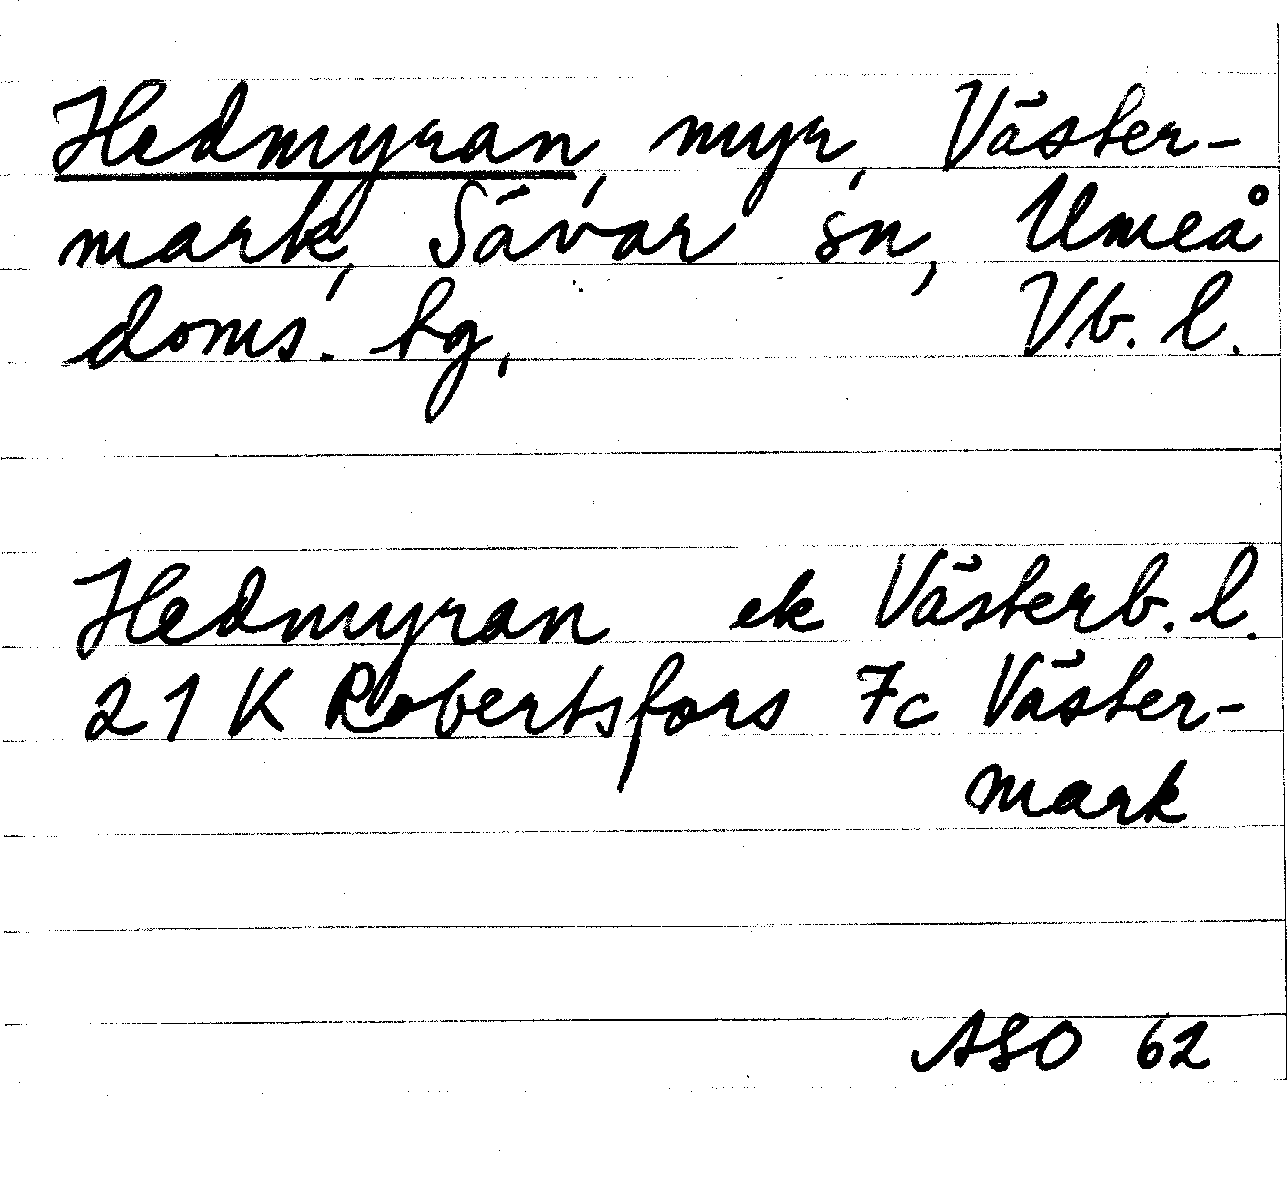 Hedmyran, myr, Väster-
mark, Sävar sn, Umeå
doms. hg, Vb. l.
Hedmyran ek Västerb. l.
21 K Robertsfors 7c Väster-
mark
ASO 62